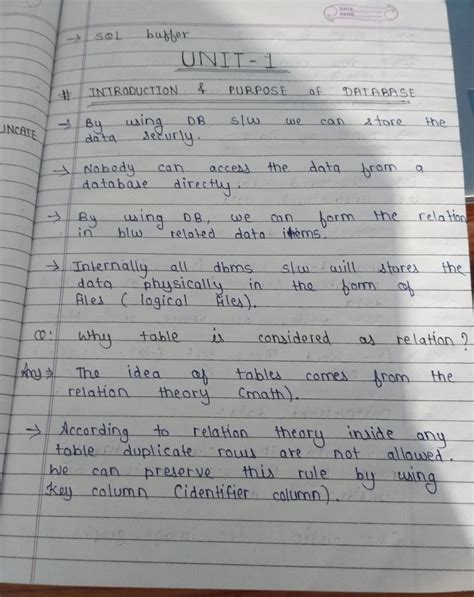 DATE
PAGE
→ SQL buffer
UNIT-1
# INTRODUCTION & PURPOSE of DATABASE
UNCATE
→ By using DB s/w we can store the
data securly.
→ Nobody can access the data from a
database directly.
→ By using DB, we can form the relation
in b/w related data items.
→ Internally all dbms s/w will stores the
data physically in the form of
files ( logical files).
Q: Why table is considered as relation?
Ans→ The idea of tables comes from the
relation theory (math).
→ According to relation theory inside any
table duplicate rows are not allowed.
We can preserve this rule by using
key column (identifier column).